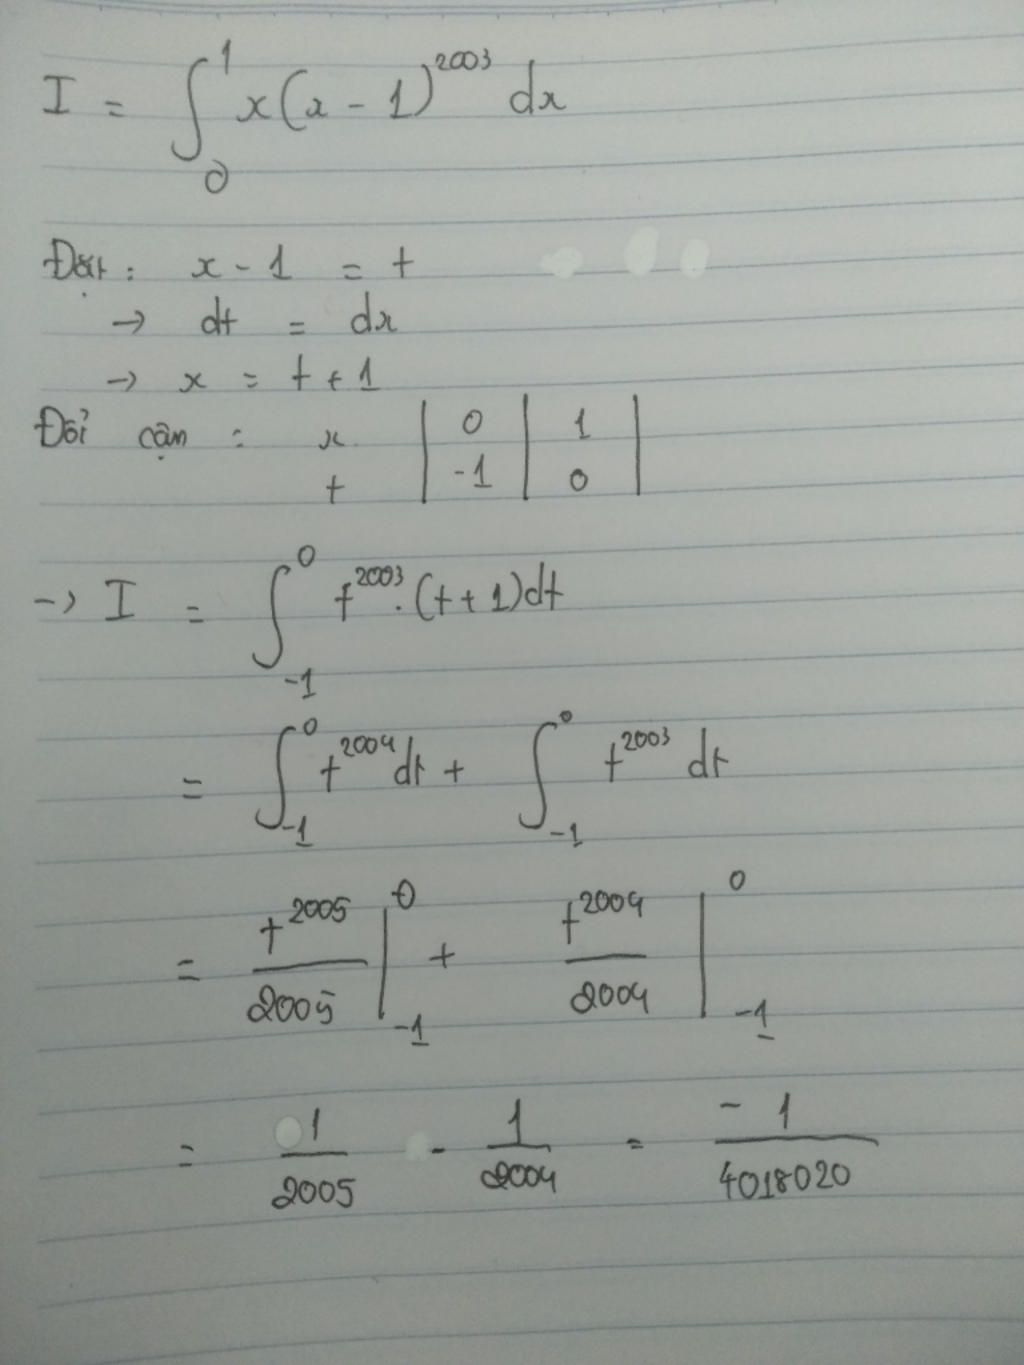 I = ∫₀¹ x(x - 1)²⁰⁰³ dx
Đặt: x - 1 = t
→ dt = dx
→ x = t + 1
Đổi cận: x | 0 | 1 |
t | -1 | 0 |
→ I = ∫₋₁⁰ t²⁰⁰³.(t + 1)dt
= ∫₋₁⁰ t²⁰⁰⁴ dt + ∫₋₁⁰ t²⁰⁰³ dt
= t²⁰⁰⁵/2005 |₋₁⁰ + t²⁰⁰⁴/2004 |₋₁⁰
= 1/2005 - 1/2004 = -1/4018020